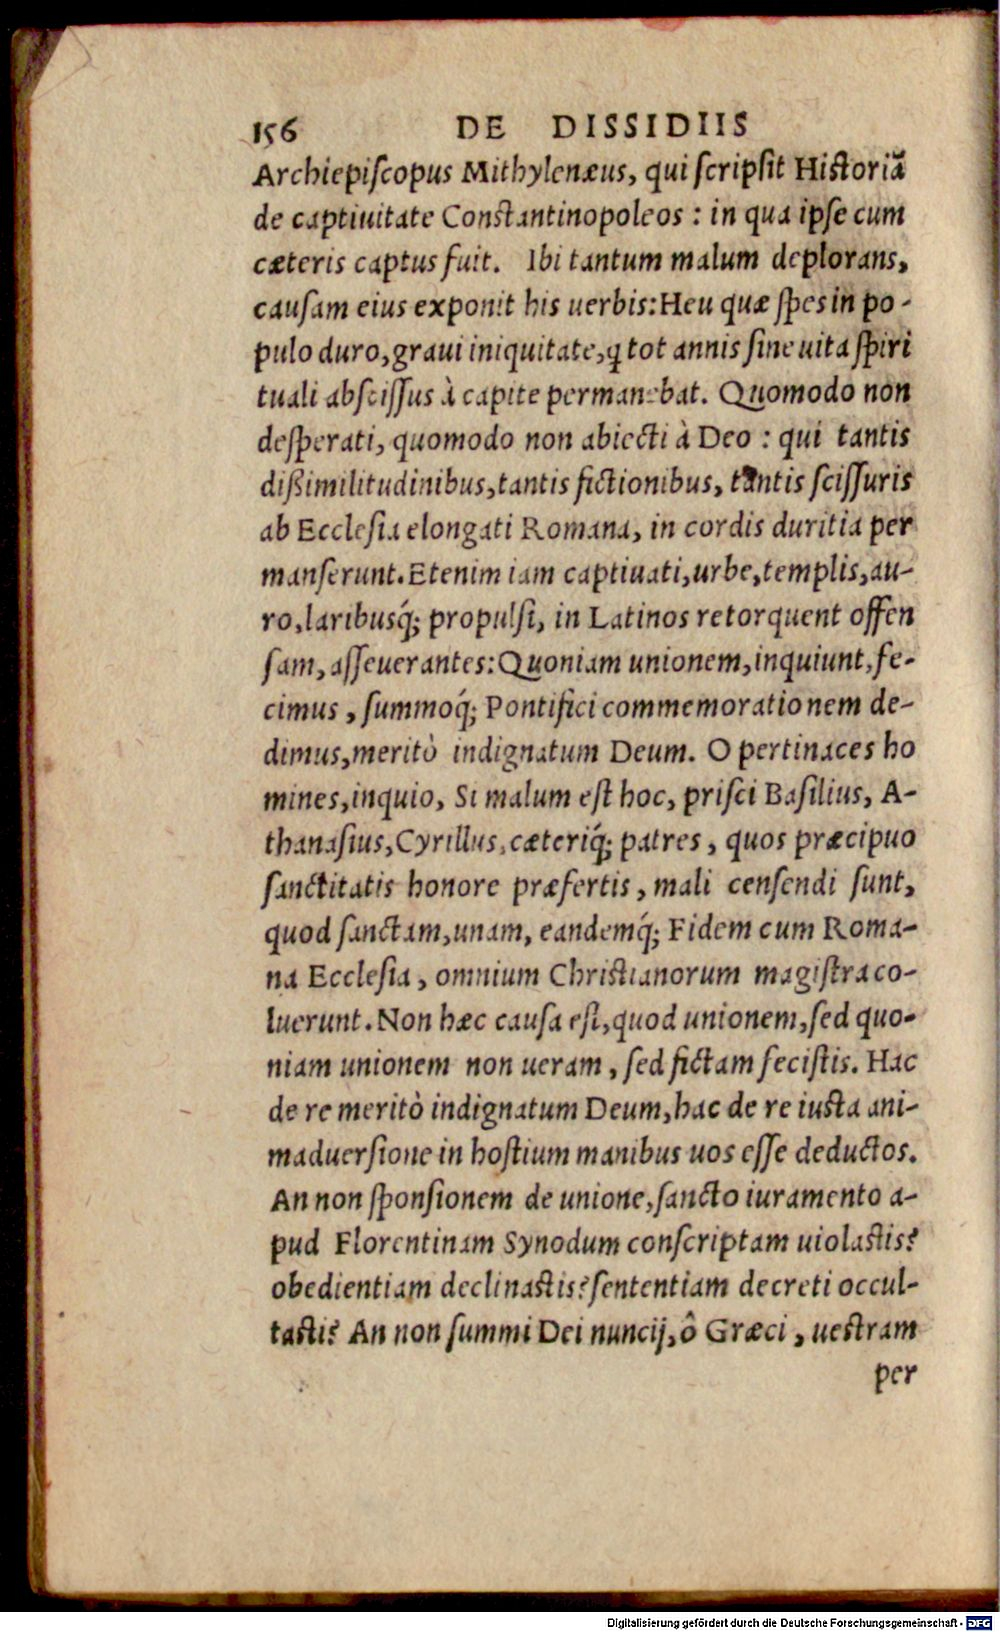 156 DE DISSIDIIS
Archiepiscopus Mithylenæus, qui scripsit Historiã
de captiuitate Constantinopoleos : in qua ipse cum
cæteris captus fuit. Ibi tantum malum deplorans,
causam eius exponit his uerbis: Heu quæ spes in po-
pulo duro, graui iniquitate, ꝗ tot annis sine uita spiri
tuali abscissus à capite permanebat. Quomodo non
desperati, quomodo non abiecti à Deo : qui tantis
dißimilitudinibus, tantis fictionibus, tantis scissuris
ab Ecclesia elongati Romana, in cordis duritia per
manserunt. Etenim iam captiuati, urbe, templis, au-
ro, laribusq́; propulsi, in Latinos retorquent offen
sam, asseuerantes: Quoniam unionem, inquiunt, fe-
cimus, summoq́; Pontifici commemorationem de-
dimus, meritò indignatum Deum. O pertinaces ho
mines, inquio, Si malum est hoc, prisci Basilius, A-
thanasius, Cyrillus, cæteriq́; patres, quos præcipuo
sanctitatis honore præfertis, mali censendi sunt,
quod sanctam, unam, eandemq́; Fidem cum Roma-
na Ecclesia, omnium Christianorum magistra co-
luerunt. Non hæc causa est, quod unionem, sed quo-
niam unionem non ueram, sed fictam fecistis. Hac
de re meritò indignatum Deum, hac de re iusta ani-
maduersione in hostium manibus uos esse deductos.
An non sponsionem de unione, sancto iuramento a-
pud Florentinam Synodum conscriptam uiolastis?
obedientiam declinastis? sententiam decreti occul-
tasti? An non summi Dei nuncij, ô Græci, uestram
per
Digitalisierung gefördert durch die Deutsche Forschungsgemeinschaft - DFG